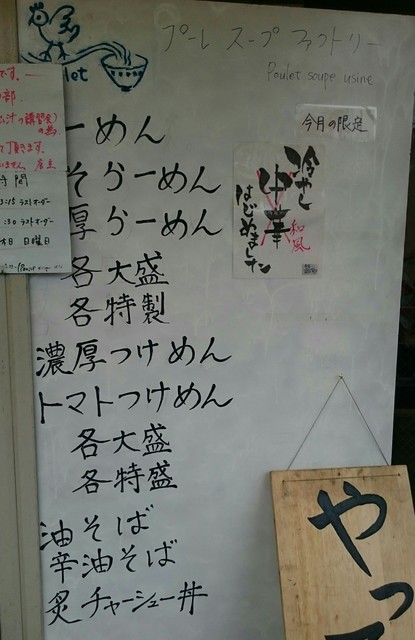 プーレ スープ ファクトリー
Poulet soupe usine
今月の限定
冷やし
中華
和風
はじめました
ーめん
そらーめん
厚らーめん
各大盛
各特製
濃厚つけめん
トマトつけめん
各大盛
各特盛
油そば
辛油そば
炙チャーシュー丼
です。
部
汁の講習会)
の為
て頂きます。
いません 店主
時間
ラストオーダー
:30 ラストオーダー
休日 日曜日
やっ